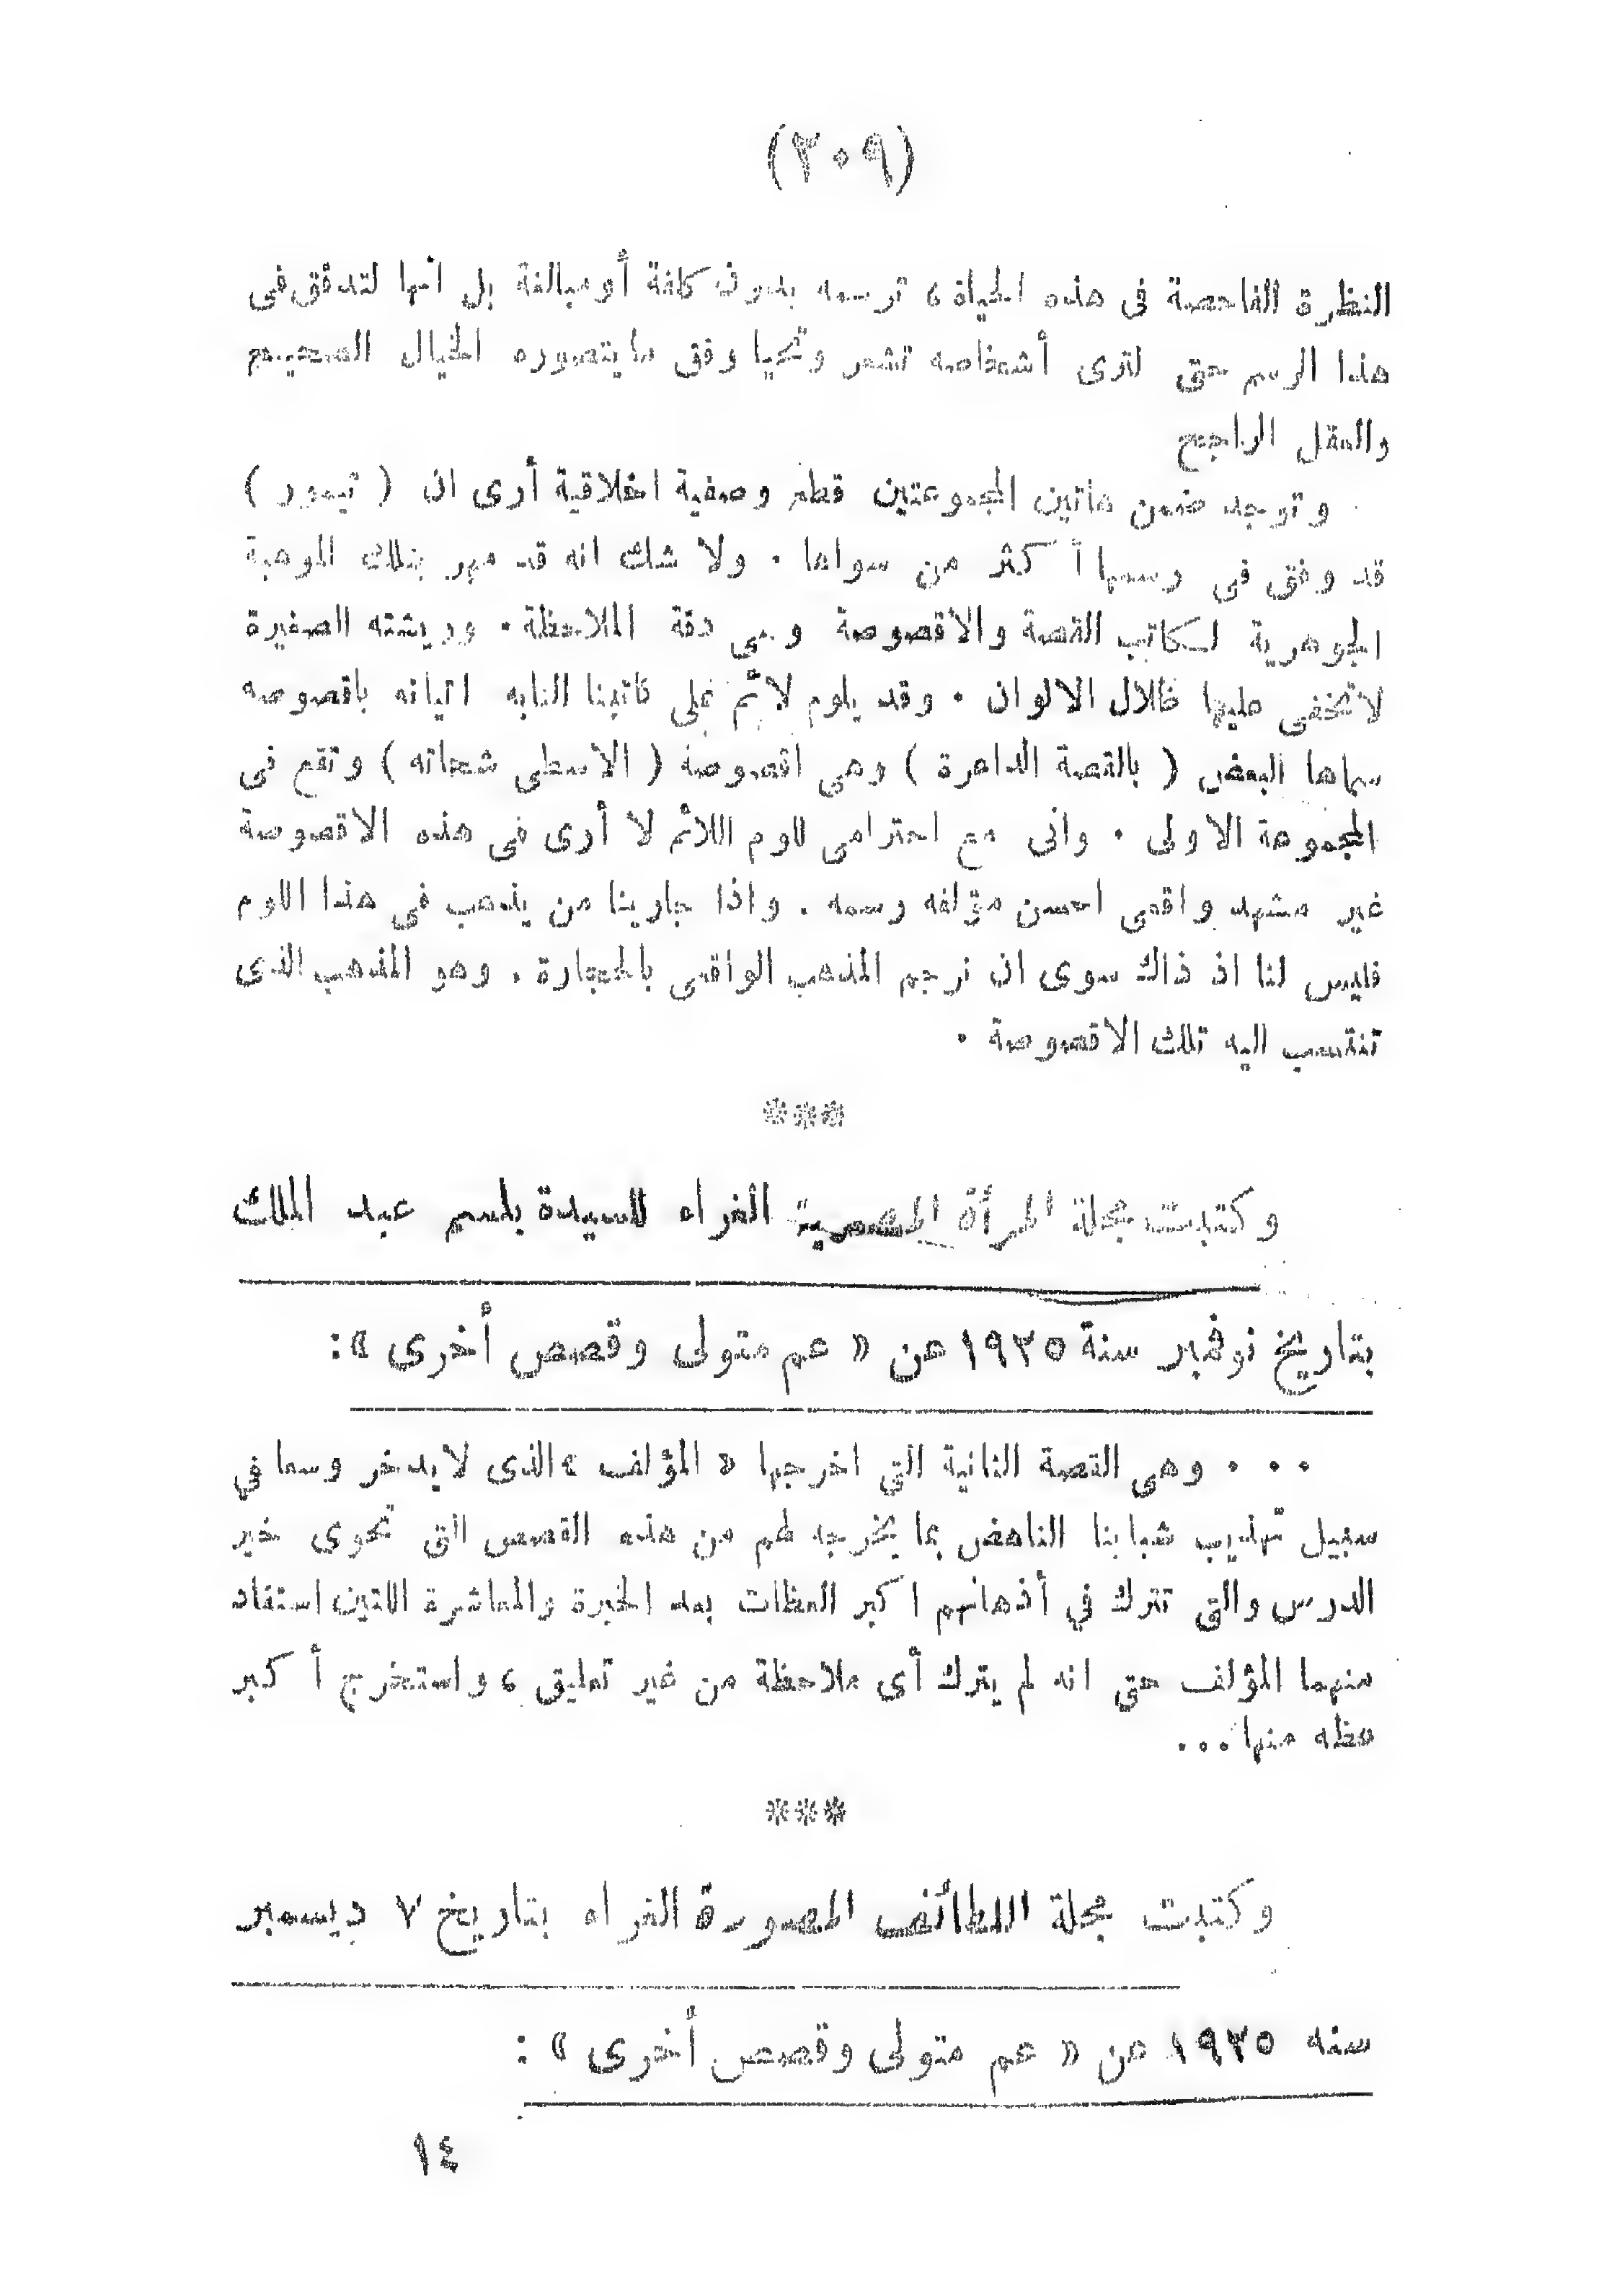 (٢٠٩)
النظرة الفاحصة فى هذه الحياة ، ترسمه بدون كلفة أو مبالغة بل انها لتدقق فى
هذا الرسم حتى لترى أشخاصه تشعر وتحيا وفق ما يتصوره الخيال الصحيح
والعقل الراجح
وتوجد ضمن هاتين المجموعتين قطع وصفية اخلاقية أرى ان ( تيمور )
قد وفق فى رسمها أكثر من سواها . ولا شك انه قد مهر بتلك الموهبة
الجوهرية لكاتب القصة والاقصوصة وهى دقة الملاحظة . وريشته الصغيرة
لا تخفى عليها ظلال الالوان . وقد يلوم لائم على كاتبنا النابه اتيانه باقصوصه
سماها البعض ( بالقصة الداعرة ) وهى اقصوصة ( الاسطى شحاته ) وتقع فى
المجموعة الاولى . وانى مع احترامى للوم اللائم لا أرى فى هذه الاقصوصة
غير مشهد واقعى احسن مؤلفه رسمه . واذا جارينا من يذهب فى هذا اللوم
فليس لنا اذ ذاك سوى ان نرجم المذهب الواقعى بالحجارة . وهو المذهب الذى
تنتسب اليه تلك الاقصوصة .
***
وكتبت مجلة المرأة المصرية الغراء للسيدة بلسم عبد الملك
بتاريخ نوفمبر سنة ١٩٢٥ عن « عم متولى وقصص أخرى » :
. . . وهى القصة الثانية التى اخرجها « المؤلف » الذى لا يدخر وسعا في
سبيل تهذيب شبابنا الناهض بما يخرجه لهم من هذه القصص التى تحوى خير
الدرس والتى تترك في أذهانهم اكبر العظات بعد الخبرة والمعاشرة اللاتين استفاد
منهما المؤلف حتى انه لم يترك أى ملاحظة من غير تعليق ، واستخرج أكبر
عظه منها . . .
***
وكتبت مجلة اللطائف المصورة الغراء بتاريخ ٧ ديسمبر
سنه ١٩٢٥ عن « عم متولى وقصص أخرى » :
١٤